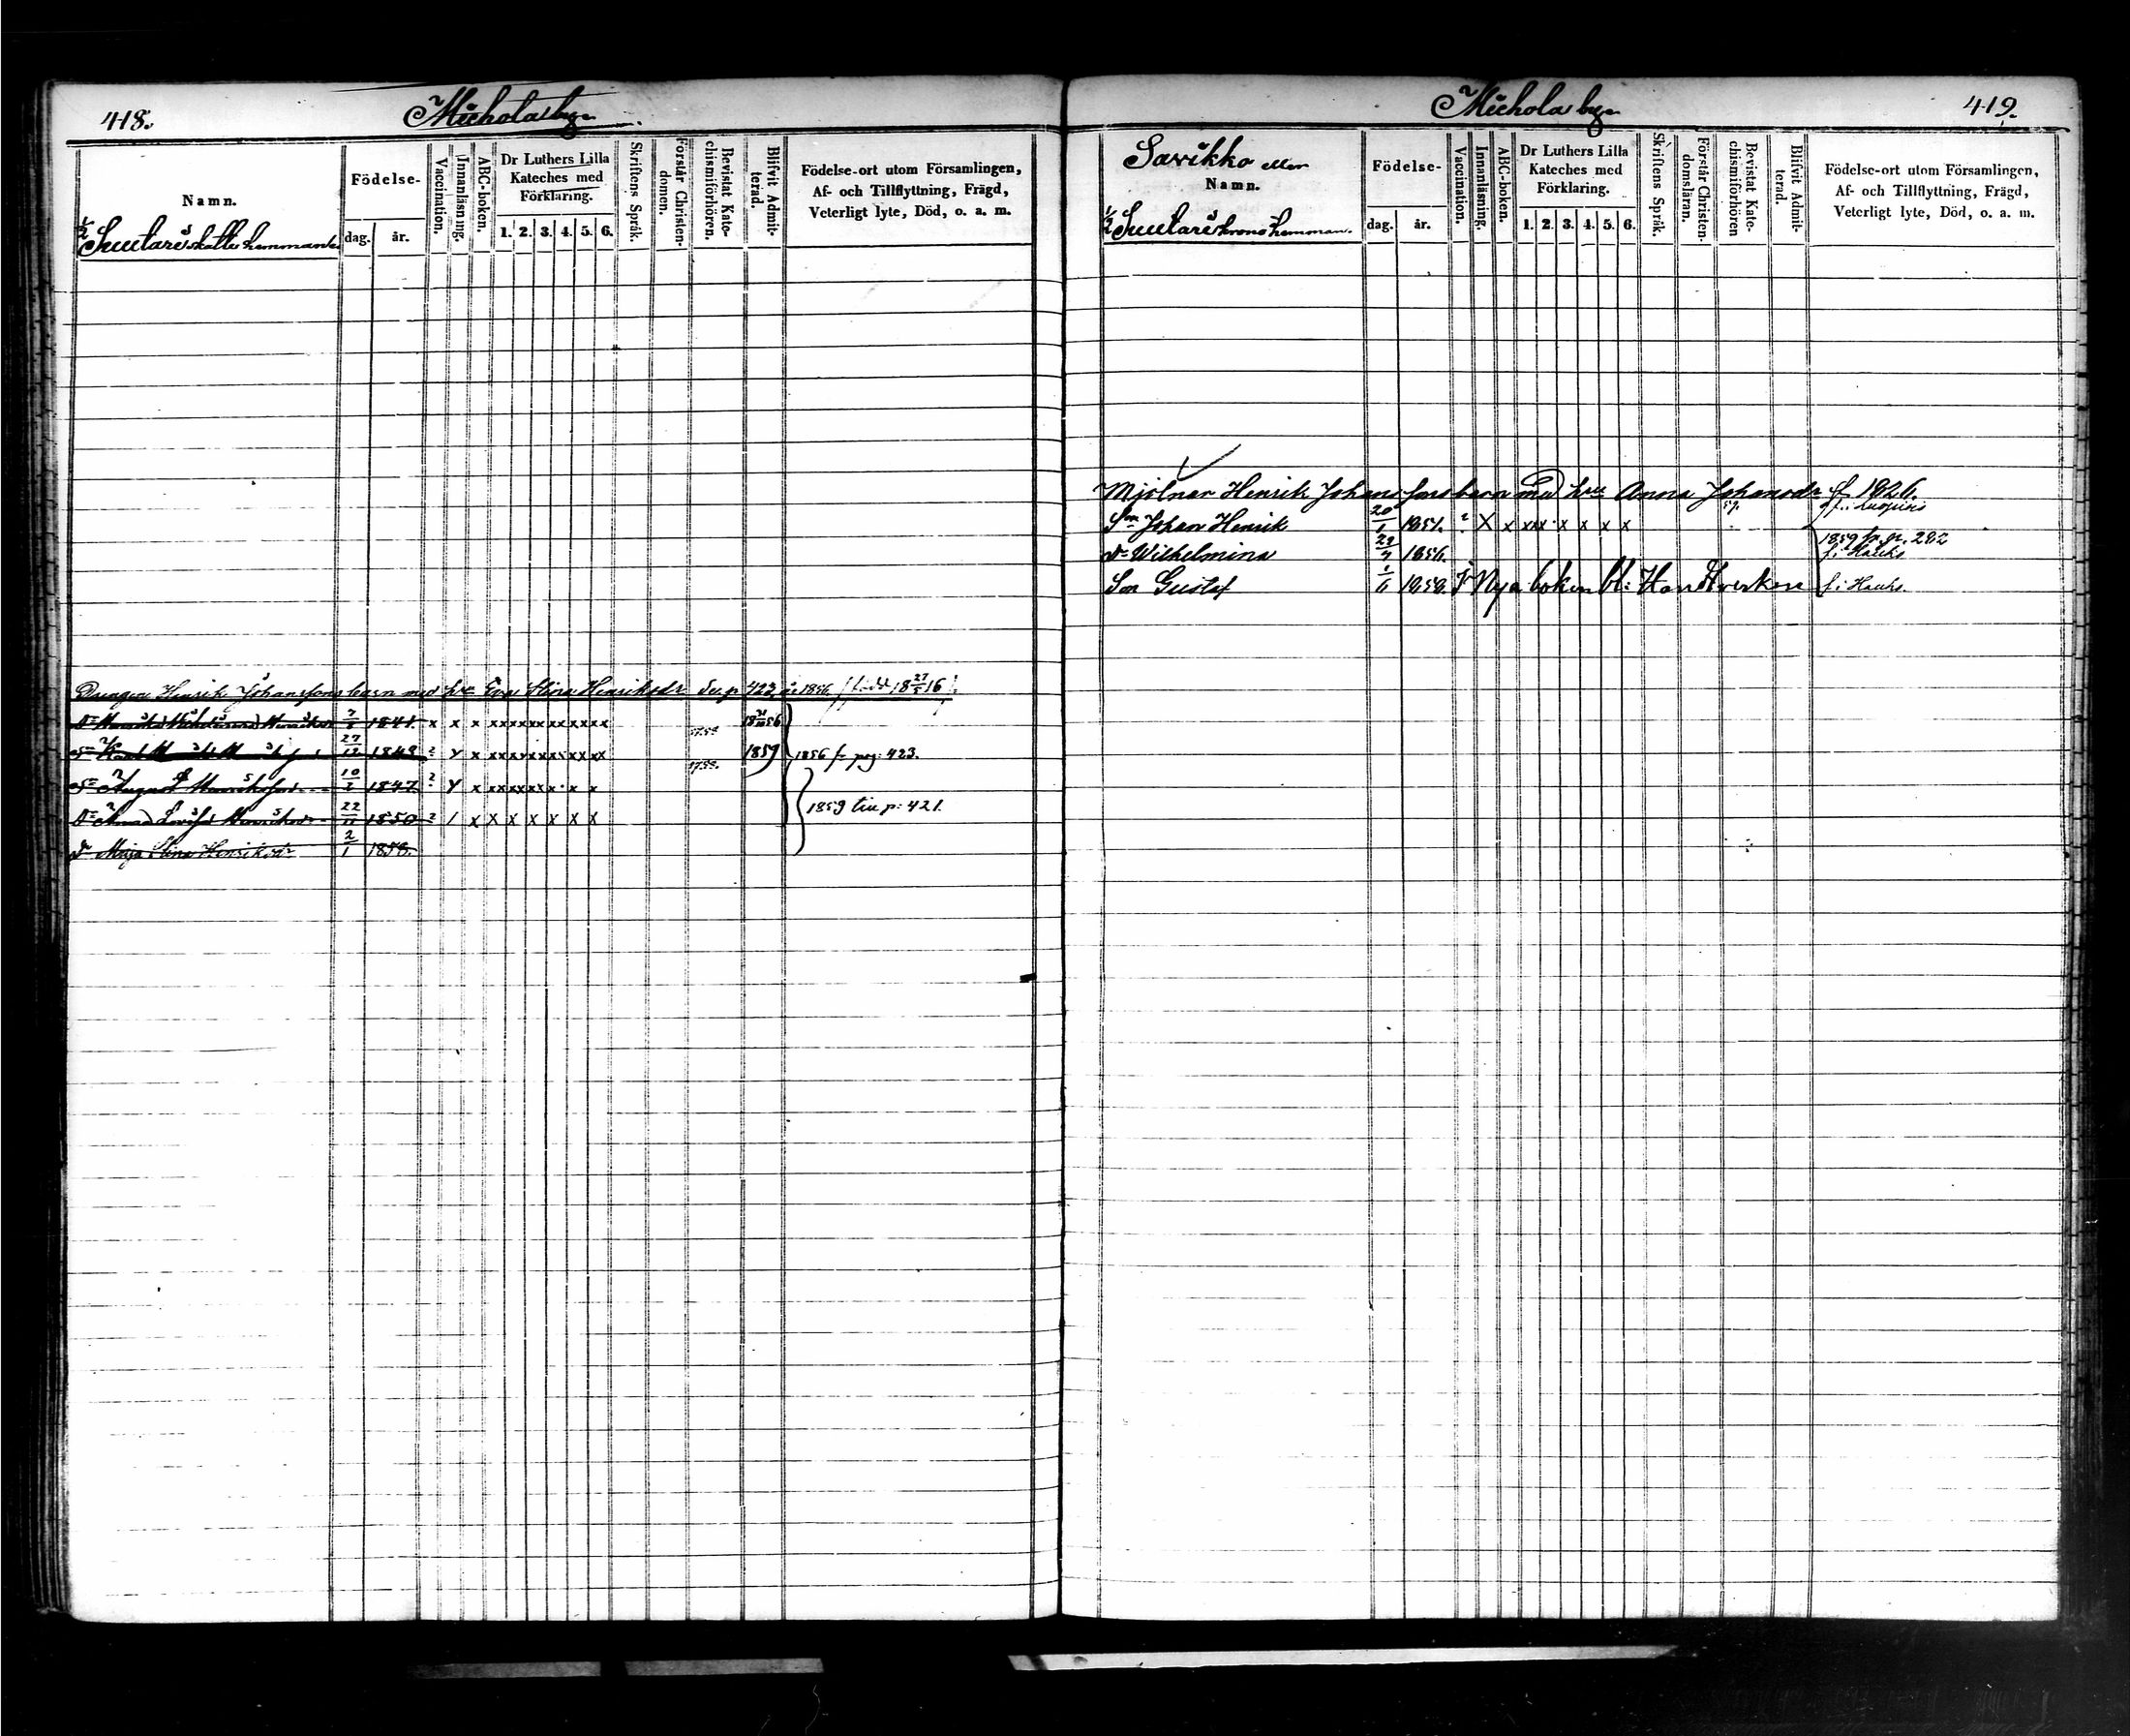 418.
Michola by
Namn.
Födelse-
dag. år.
Vaccination.
Innanläsning.
ABC-boken.
Dr Luthers Lilla Kateches med Förklaring.
1. 2. 3. 4. 5. 6.
Skriftens Språk.
Förstår Christendomen.
Bevistat Katechismiförhören.
Blifvit Admitterad.
Födelse-ort utom Församlingen,
Af- och Tillflyttning, Frägd,
Veterligt lyte, Död, o. a. m.
1/2 Suutari skatte hemman
Drängen Henrik Johanssons barn med hu Eva Stina Henriksdr Se p. 423 år 1856. född 18 27/5 16
Dr Wilhelmina Henriksdr 1841. x x x xxxxxxxxxxx 1856
Sn 27/12 1843 ? y x xxxxxxxxxxx 1859 1856 fr pag: 423.
Sn August Henriksson 10/2 1847 ? y x xxxxxx x x
Dr Anna Lovisa Henriksdr 22/11 1850 ? / x x x x x x x 1859 till p: 421.
Dr Maja Stina Henriksdr 2/1 1858.
Michola by
419.
Savikko eller
Namn.
Födelse-
dag. år.
Vaccination.
Innanläsning.
ABC-boken.
Dr Luthers Lilla Kateches med Förklaring.
1. 2. 3. 4. 5. 6.
Skriftens Språk.
Förstår Christendomsläran.
Bevistat Katechismiförhören
Blifvit Admitterad.
Födelse-ort utom Församlingen,
Af- och Tillflyttning, Frägd,
Veterligt lyte, Död, o. a. m.
1/2 Suutari krono hemman.
Mjölnar Henrik Johanssons barn med hu Anna Johansdr f. 1826.
Son Johan Henrik 20/1 1851. ? x x xxx x x x x f. i Luopiois
Dr Wilhelmina 1856. 1859 fr. p. 282 f. i Hauho
Son Gustaf 1/11 1858. i Nya boken bl: Handtverkare f. i Hauho.